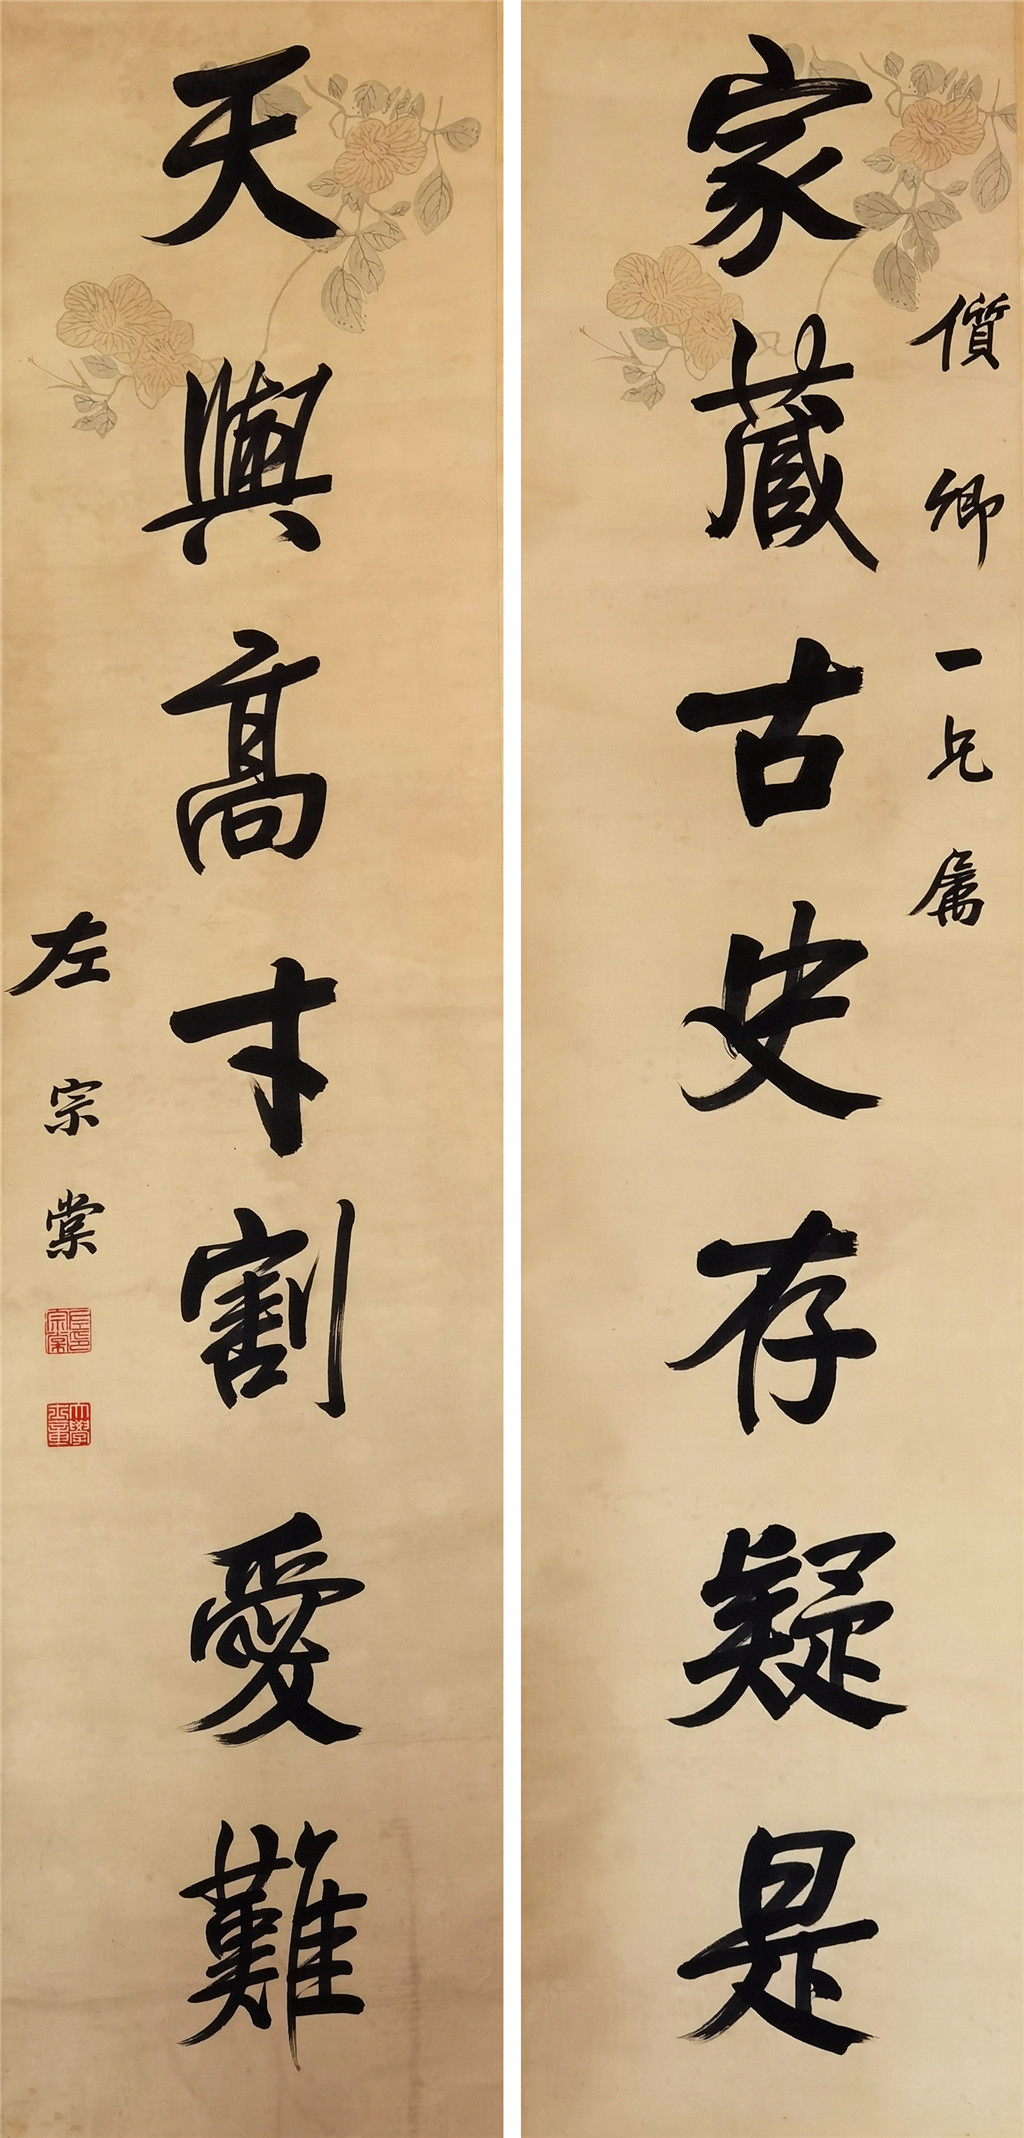 儥卿一兄属
家藏古史存疑是
天與高才割愛難
左宗棠